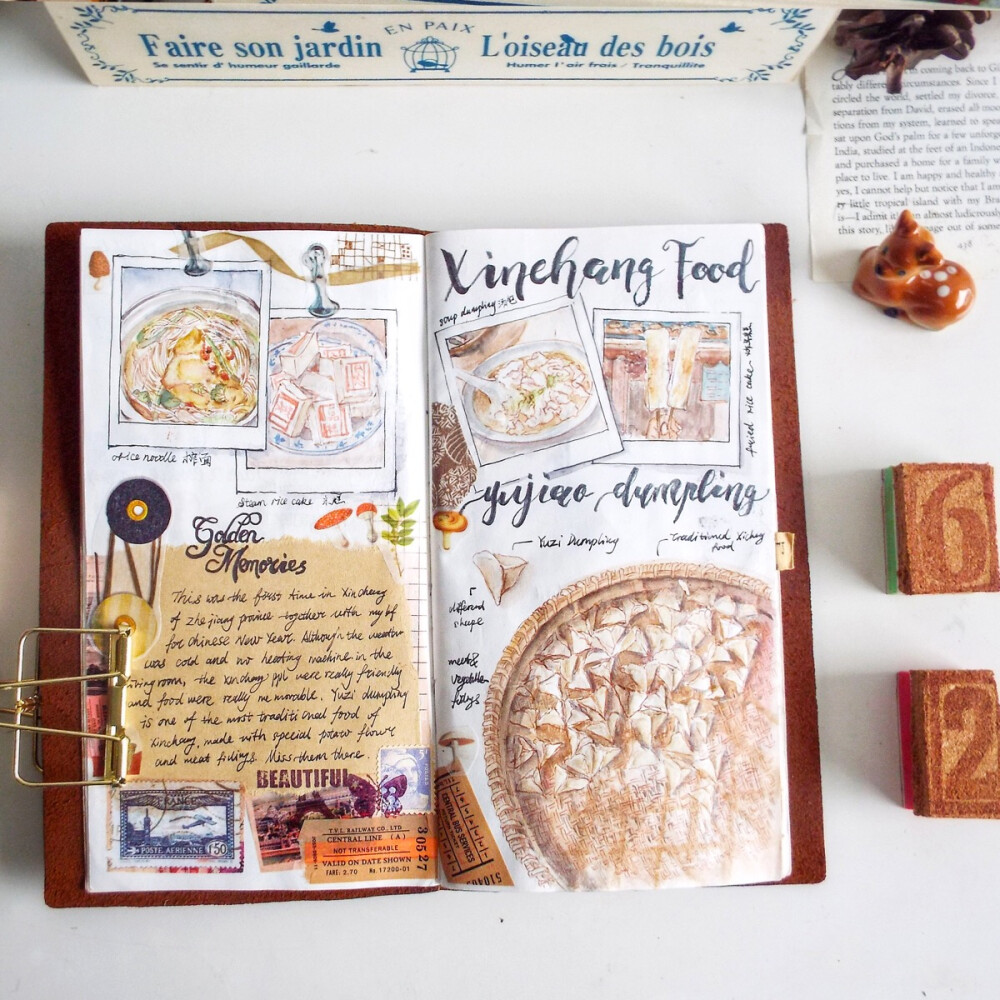 EN PAIX
Faire son jardin
L'oiseau des bois
Se sentir d' humeur gaillarde
Humer l'air frais / Tranquillite
coming back to
tably different circumstances. Since I
circled the world, settled my divorce,
separation from David, erased all
tions from my system, learned to
sat upon God's palm for a few
India, studied at the feet of an
and purchased a home for a family
place to live. I am happy and healthy
yes, I cannot help but notice that I am
little tropical island with my
is—I admit it almost ludicrously
this story, page out of
rice noodle
Steam rice cake
Golden
Memories
This was the first time in Xinchang
of Zhejiang prance together with my bf
for Chinese New Year. Although the weather
was cold and no heating machine in the
living room, the xinchang ppl were really friendly
and food were really memorable. Yuzi dumpling
is one of the most traditional food of
Xinchang, made with special potato flour
and meat fillings. Miss them there.
BEAUTIFUL
FRANCE
POSTE AERIENNE
1F50
T.V.L. RAILWAY CO., LTD
CENTRAL LINE (A)
NOT TRANSFERABLE
VALID ON DATE SHOWN
FARE: 2.70 No. 17200-01
30527
Xinchang Food
soup dumpling 汤包
fried rice cake
yujiao dumpling
Yuzi Dumpling
Traditional Xichang
food
different
shape
meat&
vegetables
CENTRAL BUS SERVICES
6
2